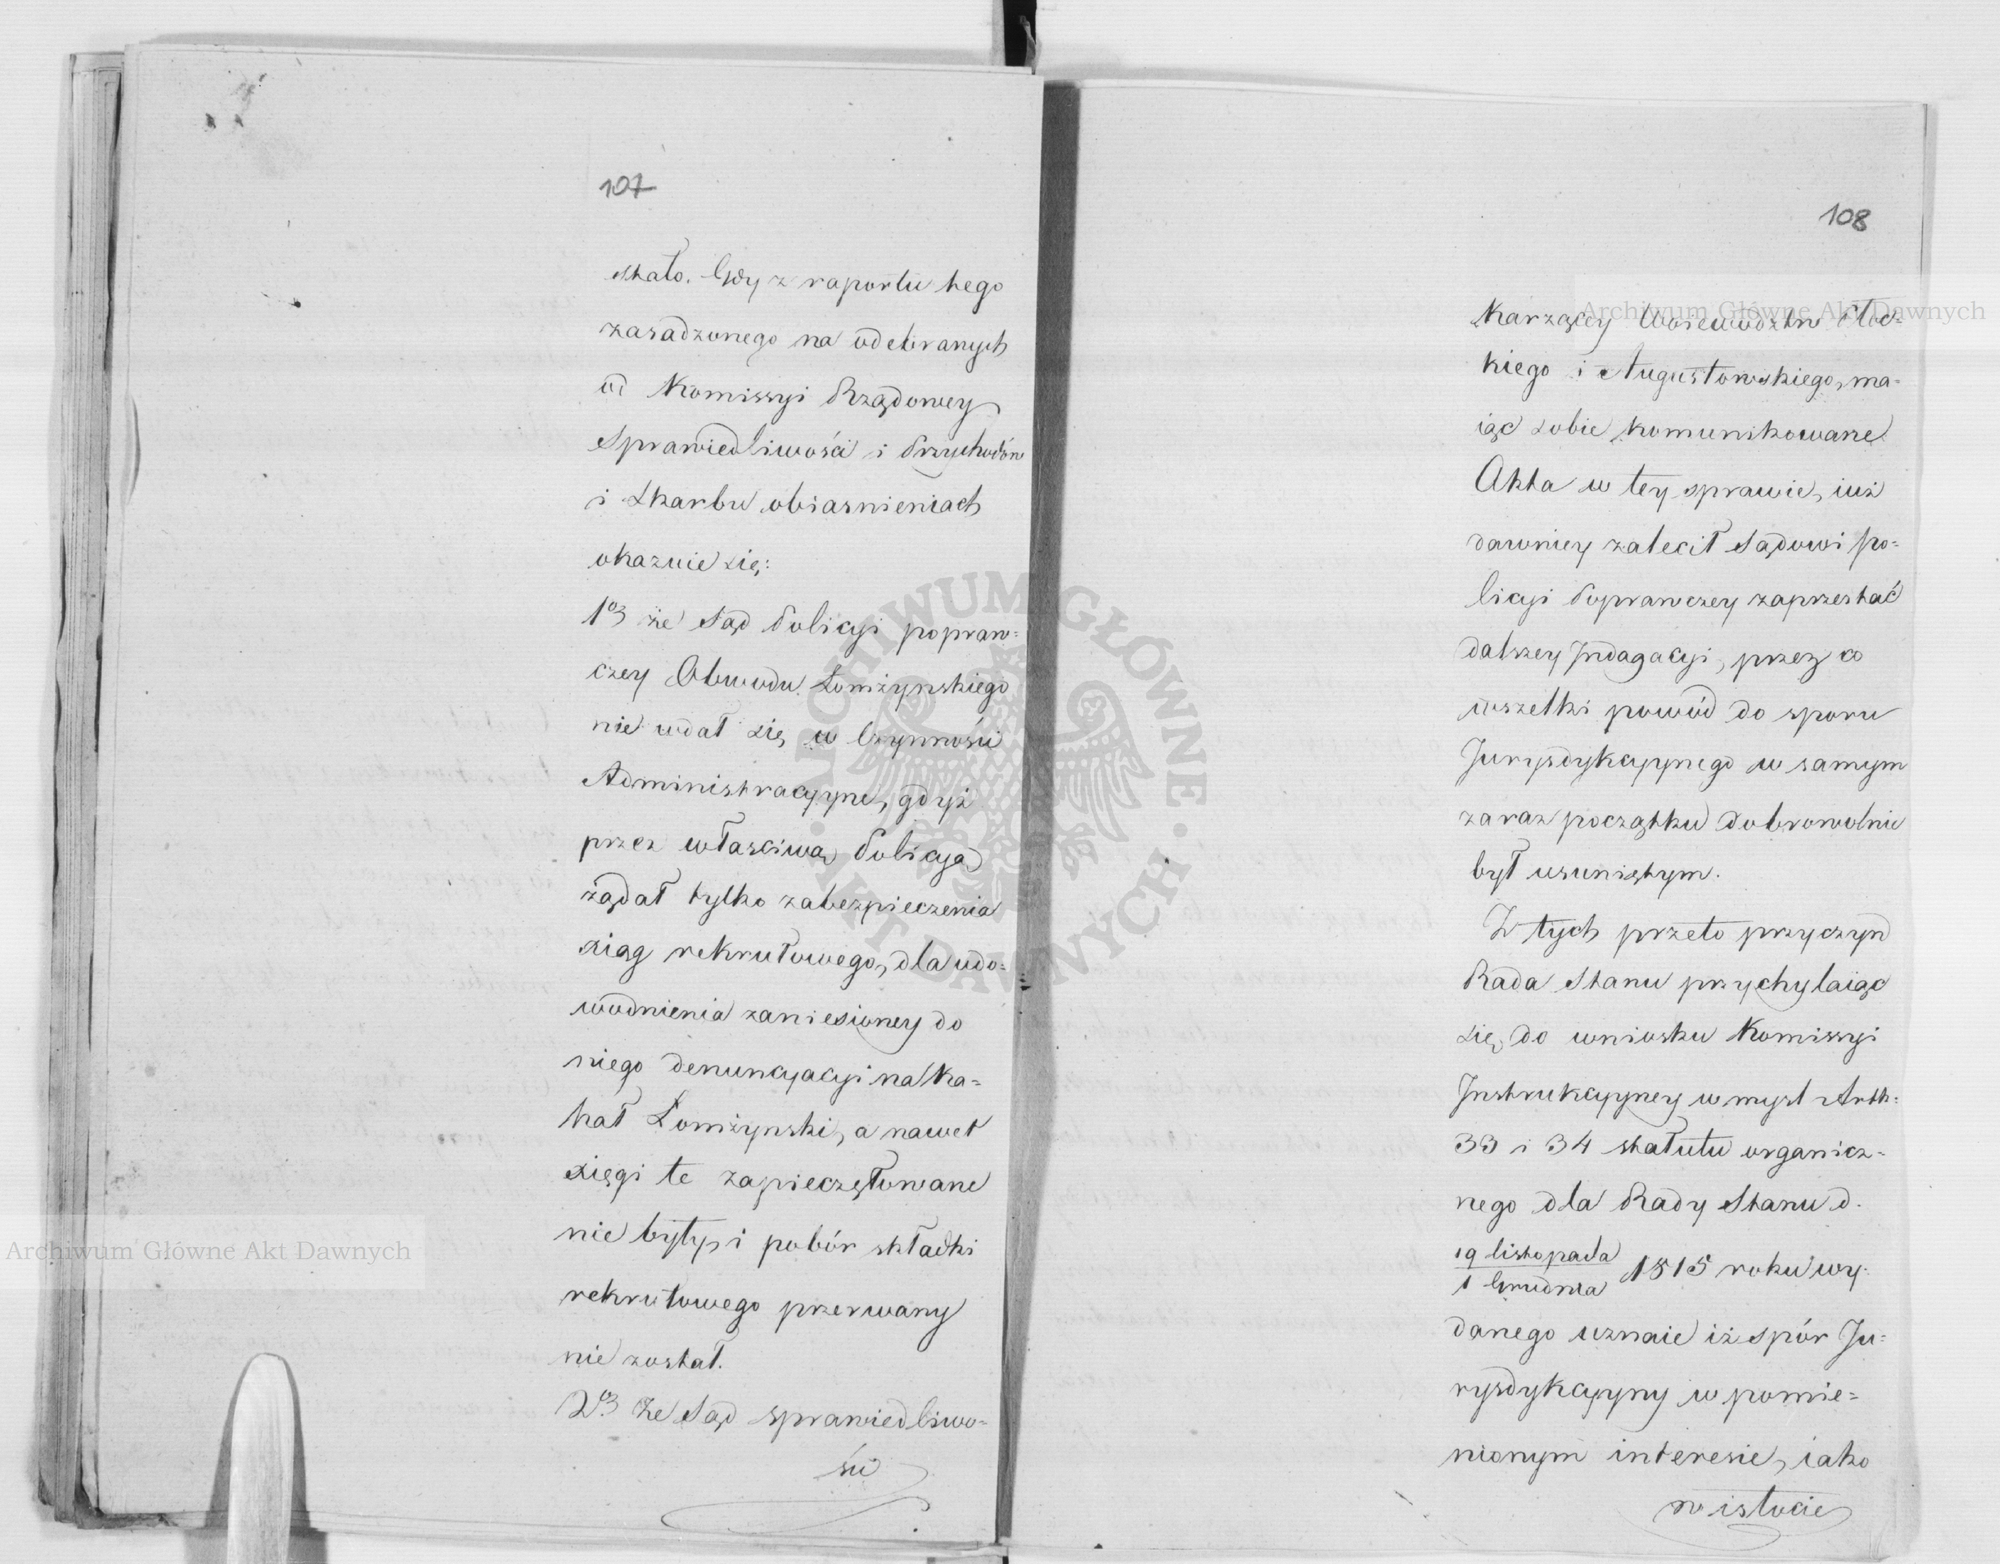 107
stało. Gdy z raportu tego
zasadzonego na odebranych
od Kommissyi Rządowey
Sprawiedliwości i Przychodów
i Skarbu obiaśnieniach
okazuie się:
1º że Sąd Policyi popraw-
czey Obwodu Łomżyńskiego
nie wdał się w Czynności
Administracyyne, gdyż
przez właściwą Policyą
żądał tylko zabezpieczenia
xiąg rekrutowego, dla udo-
wodnienia zaniesioney do
niego denuncyacyi na Ka-
hał Łomżyński, a nawet
xięgi te zapieczętowane
nie były, i pobór składki
rekrutowego przerwany
nie został.
2º Że Sąd sprawiedliwo-
ści
108
Karzącey Woiewództw Płoc-
kiego i Augustowskiego, ma-
iąc sobie komunikowane
Akta w tey sprawie, iuż
dawniey zalecił Sądowi Po-
licyi Poprawczey zaprzestać
dalszey Indagacyi, przez co
wszelki powód do sporu
Jurysdykcyynego w samym
zaraz początku dobrowolnie
był usuniętym.
Z tych przeto przyczyn
Rada Stanu przychylaiąc
się do wniosku Komissyi
Instrukcyyney w myśl Artk:
33 i 34 statutu organicz-
nego dla Rady Stanu d.
19 listopada
1 Grudnia 1815 roku wy-
danego uznaie iż spór Ju-
rysdykcyyny w pomie-
nionym interesie, iako
w istocie
Archiwum Główne Akt Dawnych
Archiwum Główne Akt Dawnych
ARCHIWUM GŁÓWNE · AKT DAWNYCH ·